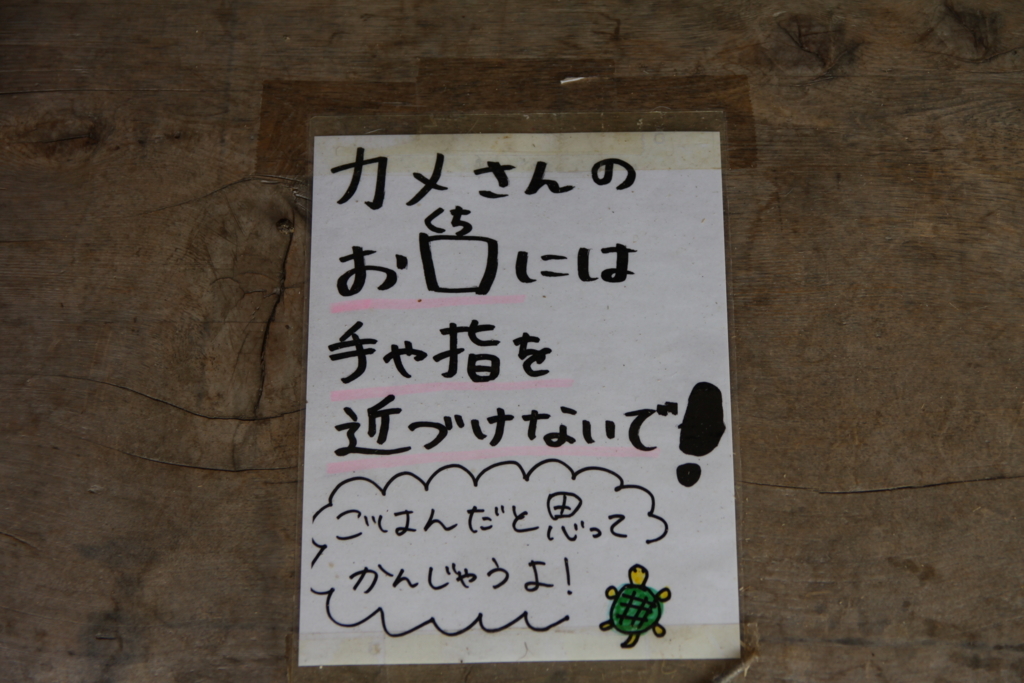 カメさんの
くち
お口には
手や指を
近づけないで！
ごはんだと思って
かんじゃうよ！